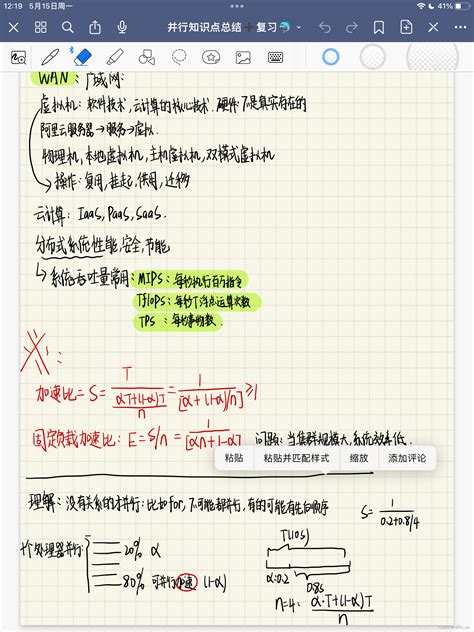 12:19 5月15日周一
41%
并行知识点总结➕复习🐬
WAN：广域网：
虚拟机：软件技术，云计算的核心技术，硬件不是真实存在的
阿里云服务器→服务→虚拟．
物理机，本地虚拟机，主机虚拟机，双模式虚拟机
操作：复用，挂起，供用，迁移
云计算：IaaS，PaaS，SaaS．
分布式系统性能，安全，节能
↳系统吞吐量常用：MIPS：每秒执行百万指令
Tflops：每秒T浮点运算次数
TPS：每秒事物数．
加速比＝S＝T/((αT+(1-α)T)/n)＝1/[α+(1-α)/n]≥1
固定负载加速比：E＝S/n＝1/[αn+1-α]
问题：当集群规模大，系统效率低．
粘贴 粘贴并匹配样式 缩放 添加评论
理解：没有关系的才并行：比如for，不可能都并行，有的可能有先后顺序
S＝1/(0.2+0.8/4)
个处理器并行：
20% α
80% 可并行加速 (1-α)
T(10s)
α:0.2 0.8s
n=4：(α·T+(1-α)T)/n